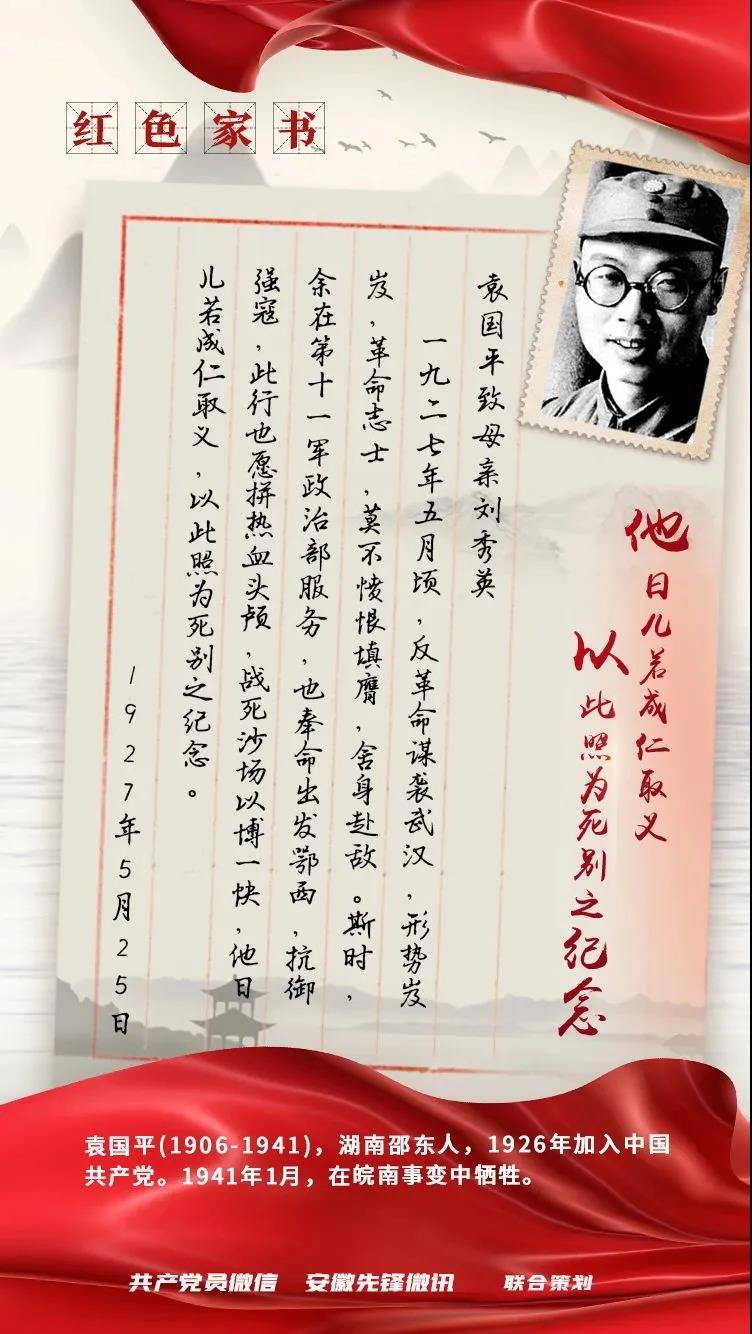 红色家书
他日儿若成仁取义
以此照为死别之纪念
袁国平致母亲刘秀英
一九二七年五月顷，反革命谋袭武汉，形势岌
岌，革命志士，莫不愤恨填膺，舍身赴敌。斯时，
余在第十一军政治部服务，也奉命出发鄂西，抗御
强寇，此行也愿拼热血头颅，战死沙场以博一快，他日
儿若成仁取义，以此照为死别之纪念。
1927年5月25日
袁国平(1906-1941)，湖南邵东人，1926年加入中国
共产党。1941年1月，在皖南事变中牺牲。
共产党员微信 安徽先锋微讯 联合策划